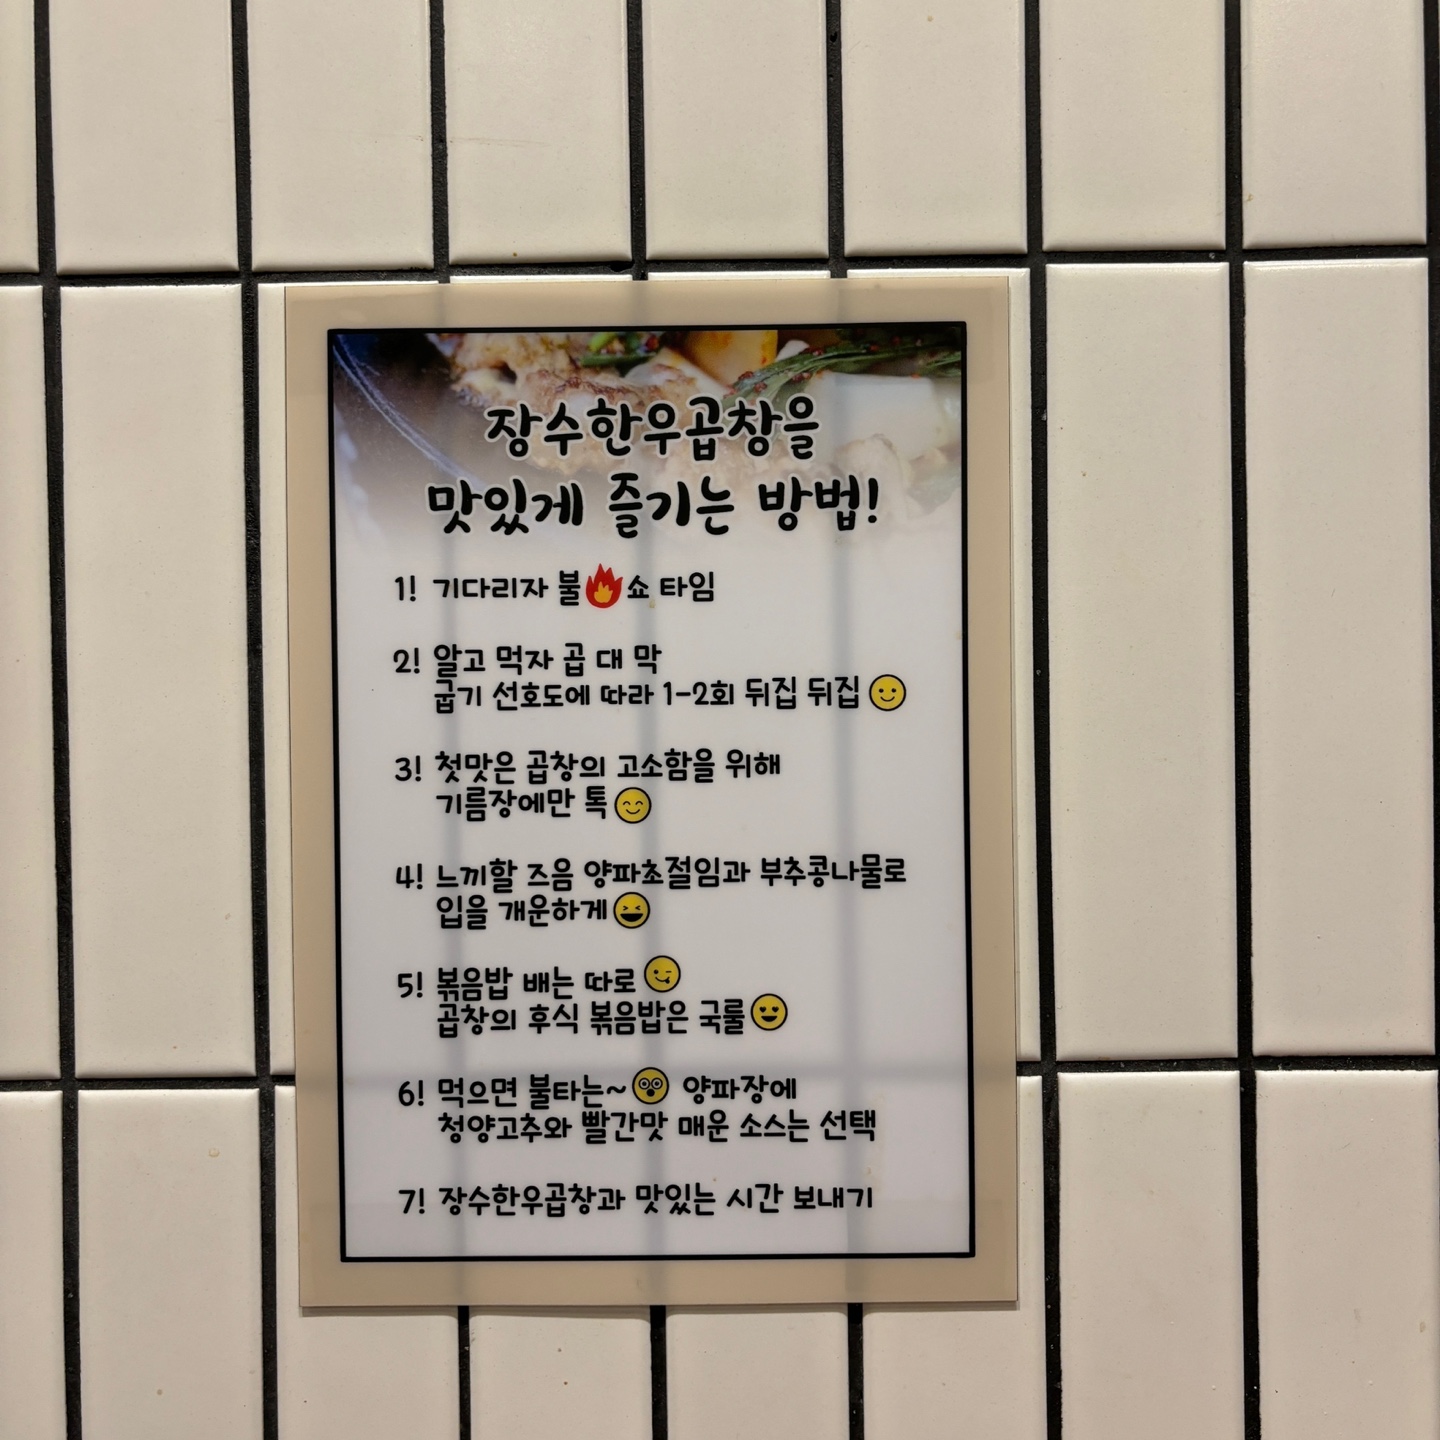 장수한우곱창을
맛있게 즐기는 방법!
1! 기다리자 불🔥쇼 타임
2! 알고 먹자 곱 대 막
굽기 선호도에 따라 1-2회 뒤집 뒤집
3! 첫맛은 곱창의 고소함을 위해
기름장에만 톡
4! 느끼할 즈음 양파초절임과 부추콩나물로
입을 개운하게
5! 볶음밥 배는 따로
곱창의 후식 볶음밥은 국룰
6! 먹으면 불타는~ 양파장에
청양고추와 빨간맛 매운 소스는 선택
7! 장수한우곱창과 맛있는 시간 보내기